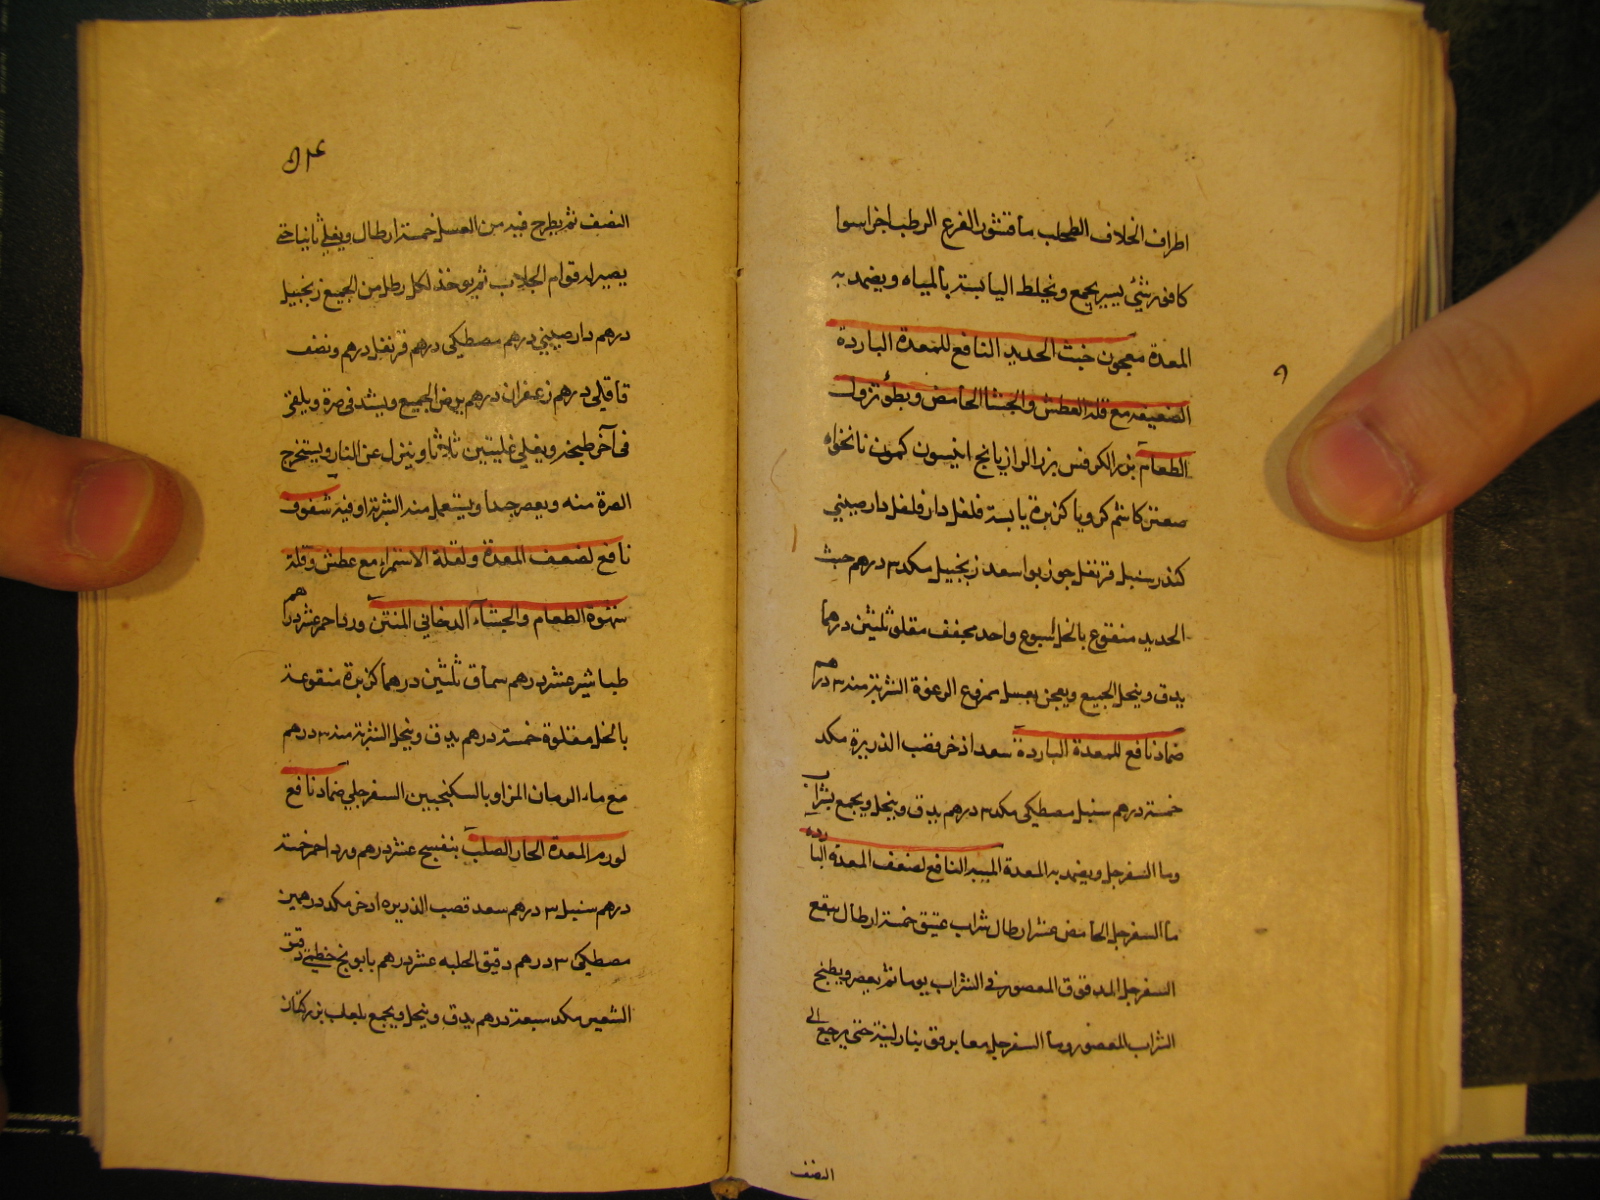 اطراف الخلاف الطحلب ما قشور القرع الرطب اجزا سوا
كافور شئ يسير يجمع ويخلط اليابسة بالمياه ويضمد به
المعدة معجون خبث الحديد النافع للمعدة الباردة
الضعيفه مع قلة العطش والجشا الحامض وبطؤ نزول
الطعام بزر الكرفس بزر الرازيانج انيسون كمون نانخواه
صعتر كاشم كرويا كزبرة يابسة فلفل دار فلفل دارصيني
كندر سنبل قرنفل جوز بوا سعد زنجبيل مكد ٣ درهم خبث
الحديد منقوع بالخل اسبوع واحد مجفف مقلو ثلثين درهما
يدق وينخل الجميع ويعجن بعسل منزوع الرغوة الشربة منه ٣ درهم
ضماد نافع للمعدة الباردة سعد اذخر قصب الذريرة مكد
خمسة درهم سنبل مصطكى مكد ٣ درهم يدق وينخل ويجمع بشراب
وما السفرجل ويضمد به المعدة الميبه النافع لضعف المعدة الباردة
ما السفرجل الحامض عشرا رطال شراب عتيق خمسة ارطال ينقع
السفرجل المدقوق المعصور في الشراب يوما ثم يعصر ويطبخ
الشراب المعصور وما السفرجل معا برفق بنار لينة حتى يرجع الى
النصف
٥١٤
النصف ثم يطرح فيه من العسل خمسة ارطال ويغلي ثانيا حتى
يصير له قوام الجلاب ثم يوخذ لكل رطل من الجميع زنجبيل
درهم دارصيني درهم مصطكى درهم قرنفل درهم ونصف
قاقلي درهم زعفران درهم يرض الجميع ويشد في صرة ويلقى
في آخر طبخه ويغلي غليتين ثلاثا وينزل عن النار ويستخرج
الصرة منه ويعصر جيدا ويستعمل منه الشربة اوقية سفوف
نافع لضعف المعدة ولقلة الاستمراء مع عطش وقلة
شهوة الطعام والجشاء الدخاني المنتن ورد احمر عشر درهم
طباشير عشر درهم سماق ثلثين درهما كزبرة منقوعة
بالخل مقلوة خمسة درهم يدق وينخل الشربة منه ٣ درهم
مع ماء الرمان المز او بالسكنجبين السفرجلي ضماد نافع
لورم المعدة الحار الصلب بنفسج عشر درهم ورد احمر خمسة
درهم سنبل ٣ درهم سعد قصب الذريره اذخر مكد درهمين
مصطكى ٣ درهم دقيق الحلبه عشر درهم بابونج خطمي دقيق
الشعير مكد سبعة درهم يدق وينخل ويجمع بلعاب بزر كتان